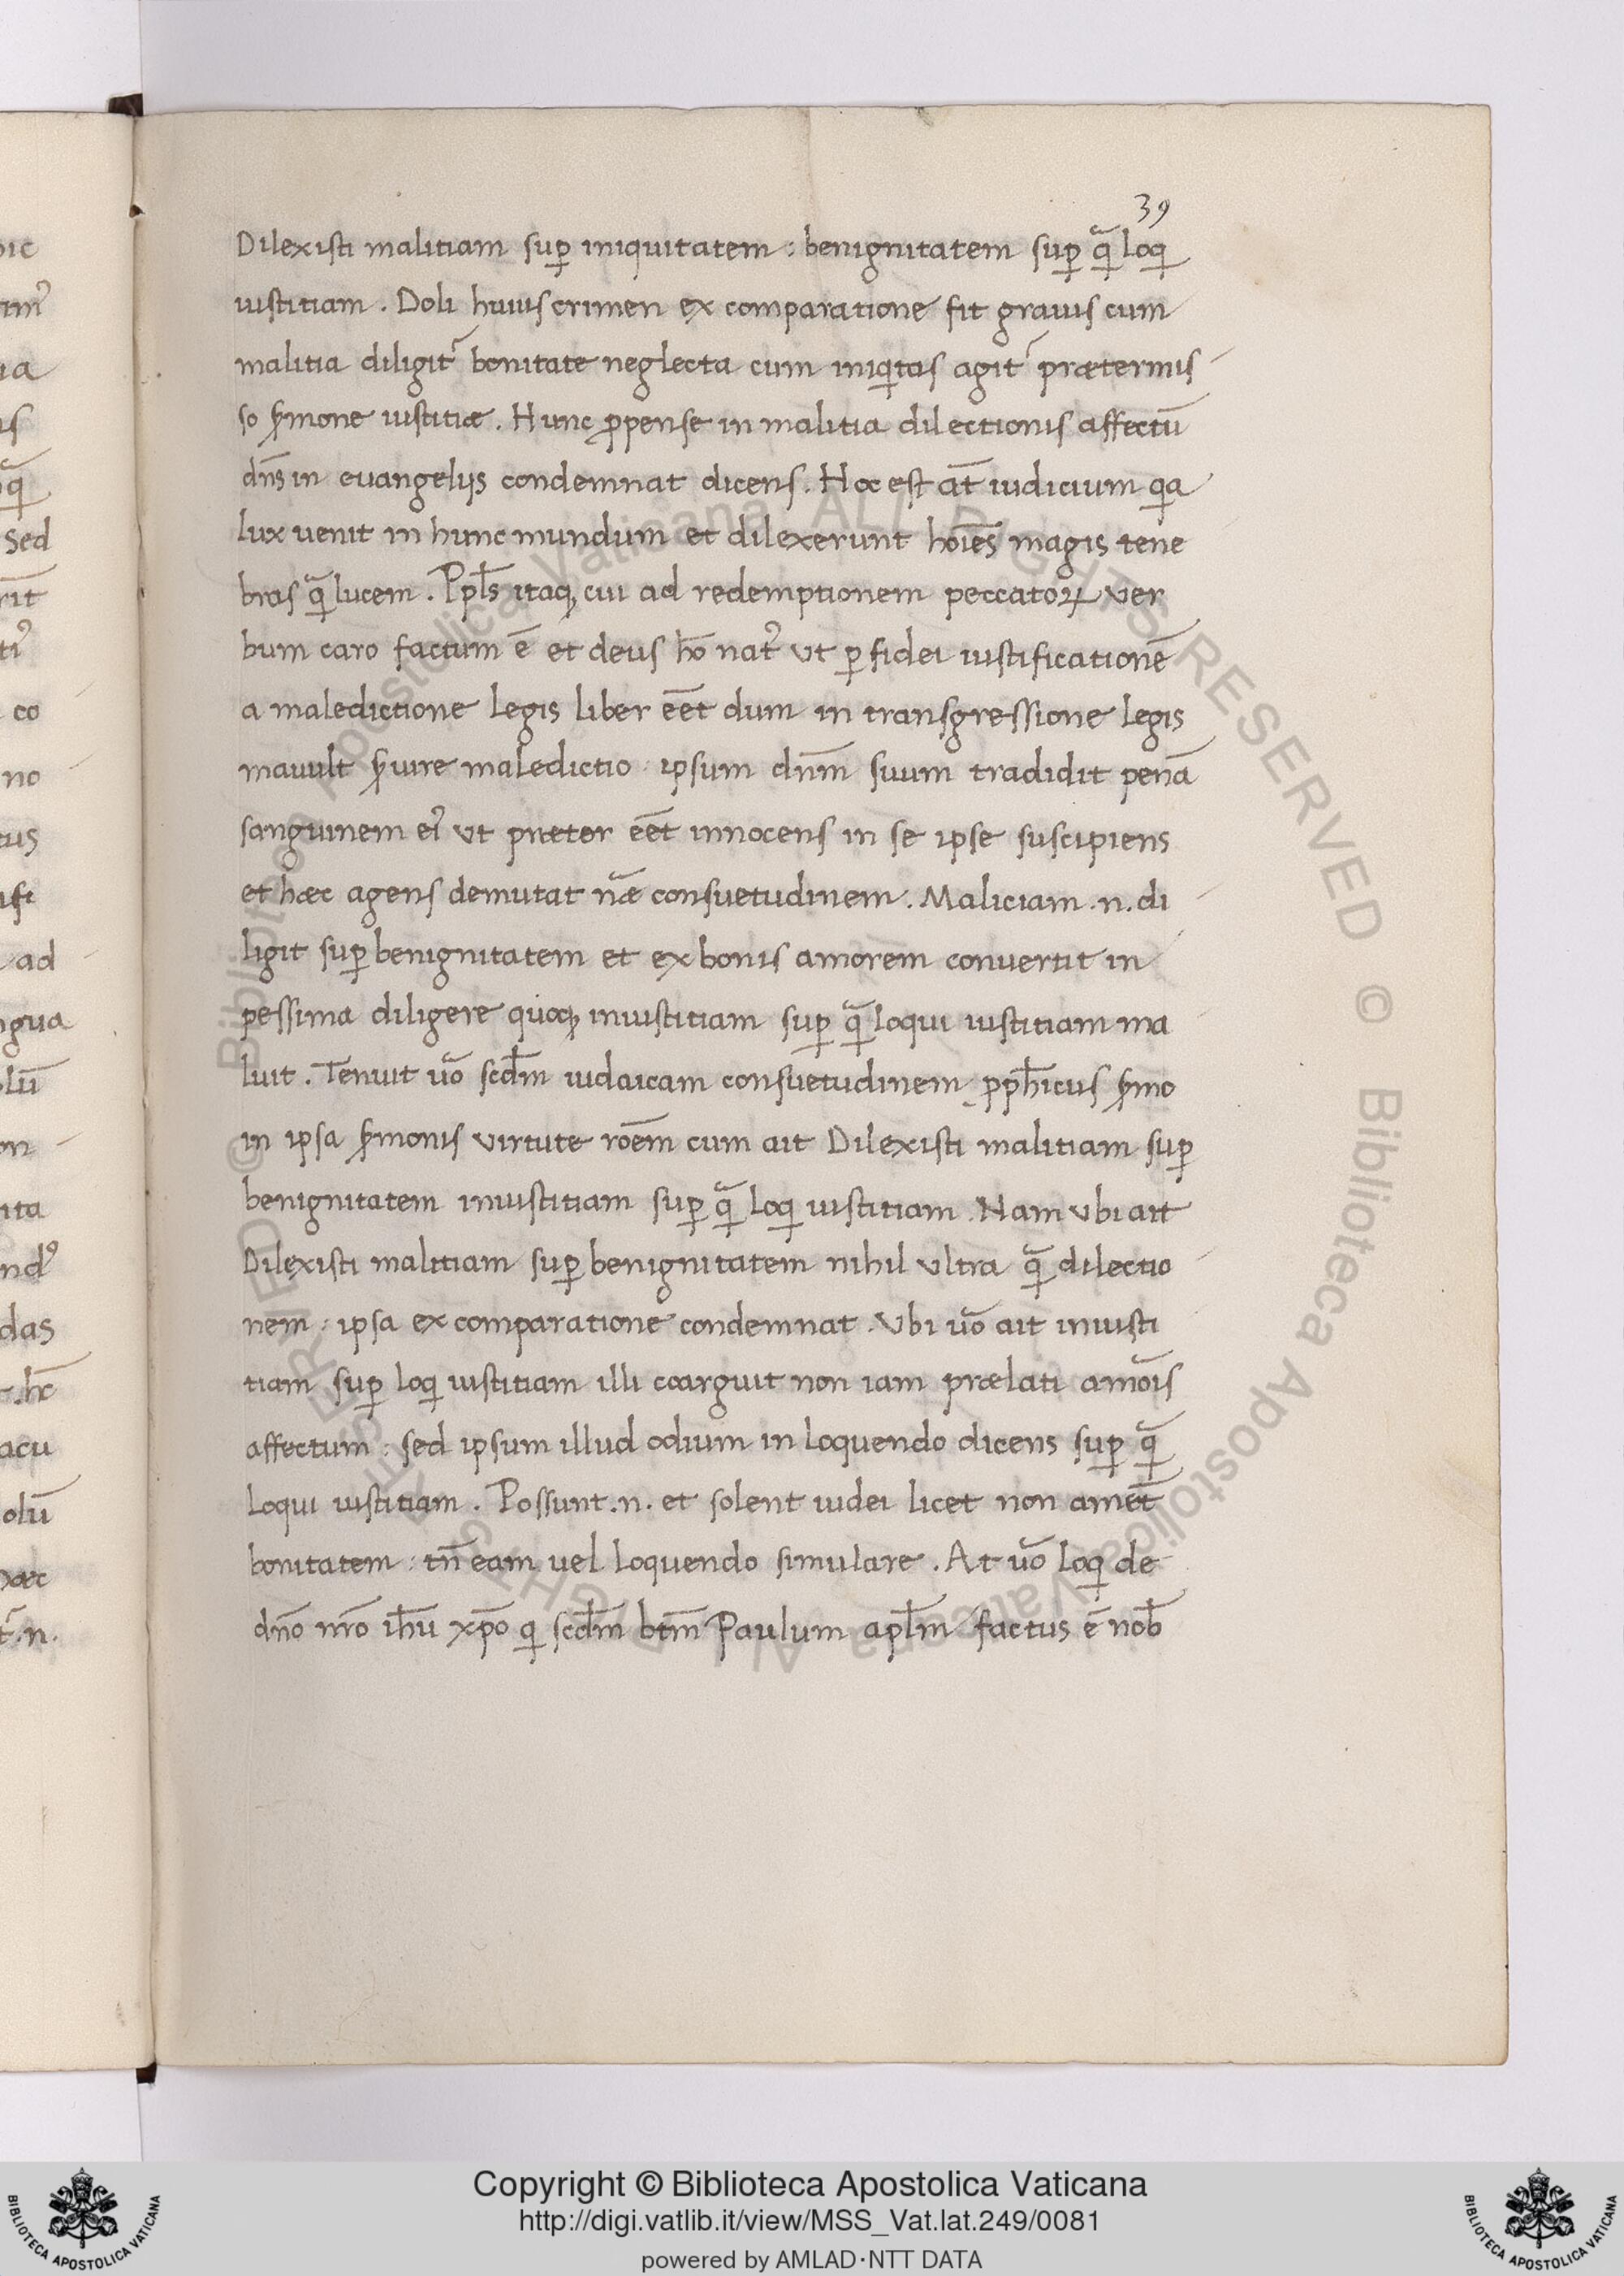 39
Dilexisti malitiam suꝑ iniquitatem : benignitatem suꝑ q̃ loq
iustitiam . Doli huius crimen ex comparatione fit grauius cum
malitia diligit᷑ bonitate neglecta cum iniqitas agit᷑ prætermis
so ẜmone iustitiæ . Hunc ꝓpense in malitia dilectionis affectū
dñs in euangelijs condemnat dicens . Hoc est at̄ iudicium qa
lux uenit in hunc mundum et dilexerunt hoīes magis tene
bras q̃ lucem . Ppl̄s itaqꝫ cui ad redemptionem peccatoꝝ ver
bum caro factum ē et deus hō nat᷒ vt ꝑ fidei iustificationē
a maledictione legis liber eēt dum in transgressione legis
mauult ẜuire maledictio ipsum dnm̄ suum tradidit penā
sanguinem ei᷒ vt preter eēt innocens in se ipse suscipiens
et hæc agens demutat næ̃ consuetudinem . Maliciam .n. di
ligit suꝑ benignitatem et ex bonis amorem conuertit in
pessima diligere quoqꝫ iniustitiam suꝑ q̃ loqui iustitiam ma
luit . Tenuit uõ scdm̄ iudaicam consuetudinem ꝓph̄icus ẜmo
in ipsa ẜmonis virtute roēm cum ait Dilexisti malitiam suꝑ
benignitatem iniustitiam suꝑ q̃ loq iustitiam . Nam vbi ait
Dilexisti malitiam suꝑ benignitatem nihil vltra q̃ dilectio
nem : ipsa ex comparatione condemnat . Vbi uõ ait iniusti
tiam suꝑ loq iustitiam illi coarguit non iam prælati amõis
affectum : sed ipsum illud odium in loquendo dicens suꝑ q̃
loqui iustitiam . Possunt .n. et solent iudei licet non amēt
bonitatem : tn̄ eam uel loquendo simulare . At uõ loq de
dño nr̄o ih̄u xp̄o q scdm̄ btm̄ Paulum apl̄m factus ē nob̄
ALL RIGHTS RESERVED © Biblioteca Apostolica Vaticana
Copyright © Biblioteca Apostolica Vaticana
http://digi.vatlib.it/view/MSS_Vat.lat.249/0081
powered by AMLAD·NTT DATA
BIBLIOTECA APOSTOLICA VATICANA
BIBLIOTECA APOSTOLICA VATICANA